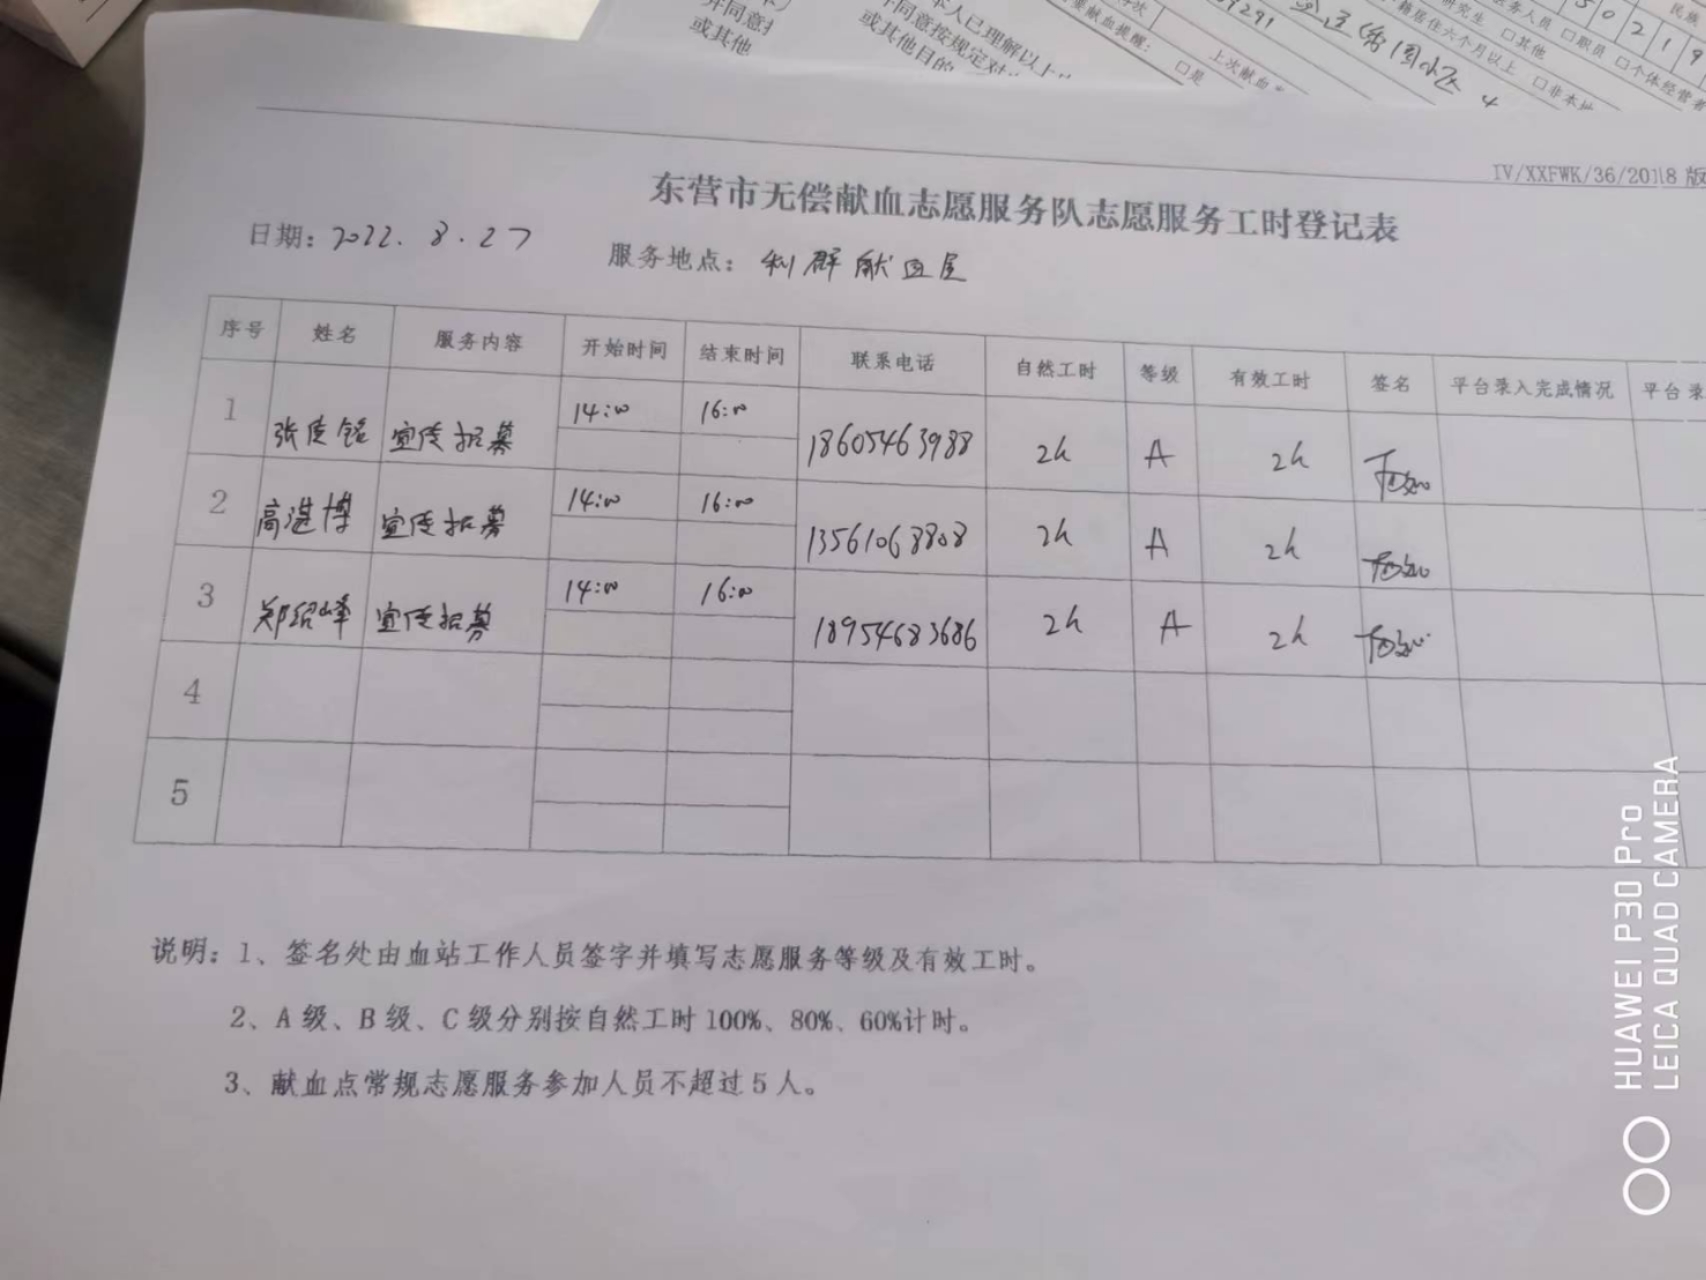 并同意
或其他
本人已理解以上
并同意按规定对
或其他目的
要献血提醒:
□是
上次献血
研究生 □其他
籍居住六个月以上 □非本地
□职员 □个体经营者
民族
IV/XXFWK/36/2018版
东营市无偿献血志愿服务队志愿服务工时登记表
日期: 2022.8.27 服务地点: 利群献血屋
序号 姓名 服务内容 开始时间 结束时间 联系电话 自然工时 等级 有效工时 签名 平台录入完成情况 平台录
1 宣传招募 14:00 16:00 18605463988 2h A 2h
2 高湛博 宣传招募 14:00 16:00 13561068808 2h A 2h
3 郑绍峰 宣传招募 14:00 16:00 18954683686 2h A 2h
4
5
说明: 1、签名处由血站工作人员签字并填写志愿服务等级及有效工时。
2、A级、B级、C级分别按自然工时100%、80%、60%计时。
3、献血点常规志愿服务参加人员不超过5人。
HUAWEI P30 Pro
LEICA QUAD CAMERA